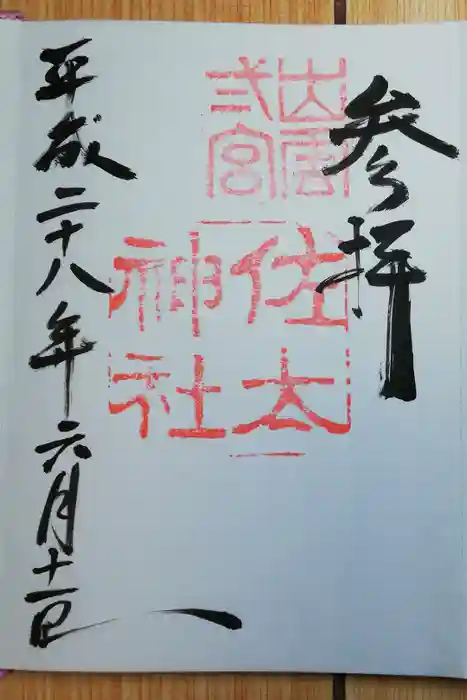 参拝
出雲
弐宮
佐太
神社
平成二十八年六月十一日